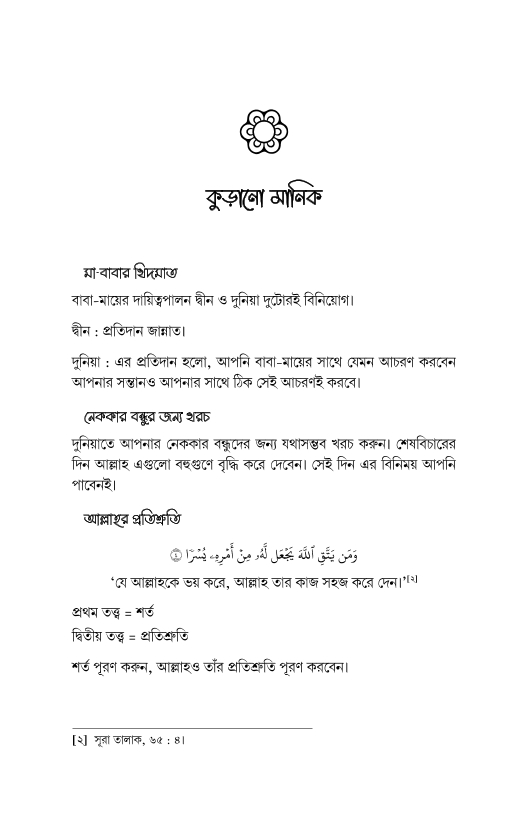 কুড়ানো মানিক
মা-বাবার খিদমাত
বাবা-মায়ের দায়িত্বপালন দ্বীন ও দুনিয়া দুটোরই বিনিয়োগ।
দ্বীন : প্রতিদান জান্নাত।
দুনিয়া : এর প্রতিদান হলো, আপনি বাবা-মায়ের সাথে যেমন আচরণ করবেন
আপনার সন্তানও আপনার সাথে ঠিক সেই আচরণই করবে।
নেককার বন্ধুর জন্য খরচ
দুনিয়াতে আপনার নেককার বন্ধুদের জন্য যথাসম্ভব খরচ করুন। শেষবিচারের
দিন আল্লাহ এগুলো বহুগুণে বৃদ্ধি করে দেবেন। সেই দিন এর বিনিময় আপনি
পাবেনই।
আল্লাহর প্রতিশ্রুতি
وَمَن يَتَّقِ ٱللَّهَ يَجْعَل لَّهُۥ مِنْ أَمْرِهِۦ يُسْرًا ۝٤
‘যে আল্লাহকে ভয় করে, আল্লাহ তার কাজ সহজ করে দেন।’[২]
প্রথম তত্ত্ব = শর্ত
দ্বিতীয় তত্ত্ব = প্রতিশ্রুতি
শর্ত পূরণ করুন, আল্লাহও তাঁর প্রতিশ্রুতি পূরণ করবেন।
[২] সূরা তালাক, ৬৫ : ৪।